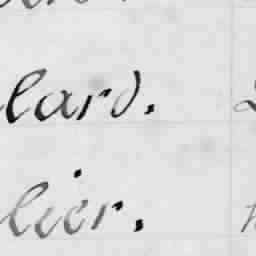 lard.
lier.